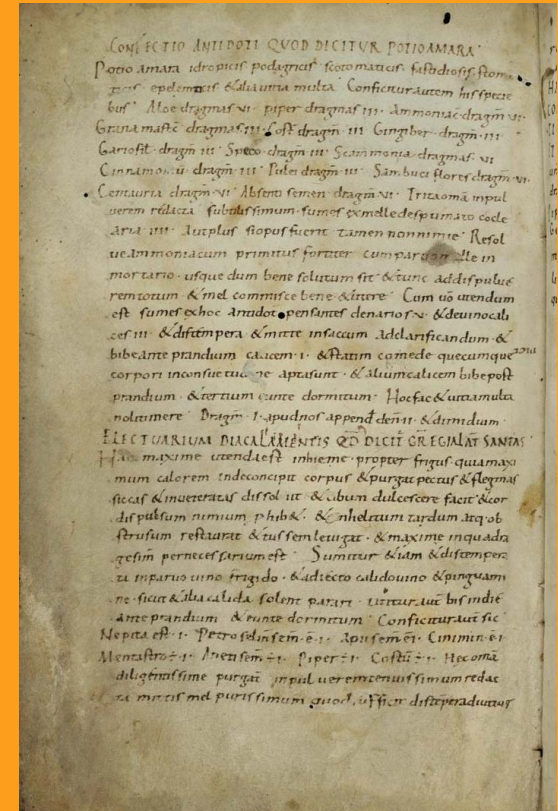 CONFECTIO ANTIDOTI QUOD DICITUR POTIO AMARA
Potio amara idropicis podagricis scotomaticis fastidiosis stoma
epelenticis & alia uitia multa Conficitur autem his specie
bus Aloe dragmas vi piper dragmas iii Ammoniac dragm vi
Grana mastic dragmas iii Cost dragm iii Gingiber dragm iii
Gariofil dragm iii Spico dragm iii Scammonia dragmas vi
Cinnamomū dragm iii Pulei dragm iii Sambuci flores dragm vi
Centauria dragm vi Absenti semen dragm vi Trita omā in pul
uerem redacta subtilissimum sumes ex melle despumato cocle
aria iiii Aut plus si opus fuerit tamen non nimie Resol
ue ammoniacum primitus fortiter cum par melle in
mortario usque dum bene solutum sit & tunc addis pulue
rem totum & mel commisce bene & tere Cum uō utendum
est sumes ex hoc Antidot pensantes denarios v & de uino cali
ces iii & distempera & mitte in saccum ad clarificandum &
bibe ante prandium calicem i & statim comede quecumque
corpori inconsuetudine aptasunt & alium calicem bibe post
prandium & tertium eunte dormitum Hoc fac & uitia multa
noli timere Dragm i apud nos append den ii & dimidium
ELECTUARIUM QD DICIT
Hac maxime utenda est in hieme propter frigus quia maxi
mum calorem inde concipit corpus & purgat pectus & flegmas
siccas & inueteratas dissoluit & cibum dulcescere facit & cor
dis pulsum nimium phib& & anhelitum tardum atq ob
strusum restaurat & tussem leuigat & maxime in quadra
gesim pernecessarium est Sumitur &iam & distempera
ta in paruo uino frigido & adiecto calido uino & pinguami
ne sicut & alia calida solent parari utitur aut bis in die
ante prandium & eunte dormitum Conficitur aut sic
Nepita est i Petroselin sem ē i Apii sem ē i Cimini ē i
Mentastro ÷ i Aneti sem ÷ i Piper ÷ i Costū ÷ i Hec omā
diligentissime purgat in puluerem tenuissimum redac
ta mittis mel purissimum quod sufficit